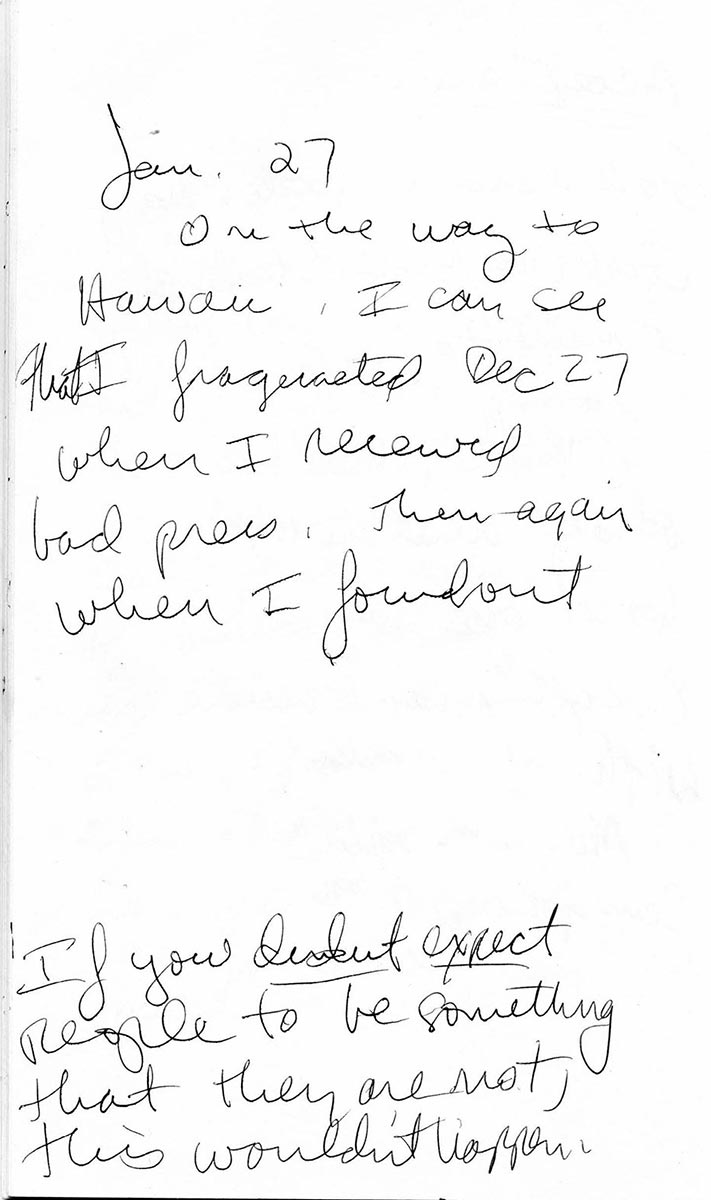 Jan. 27
On the way to
Hawaii, I can see
that I Dec 27
when I received
bad press. Then again
when I found out
If you didn't expect
people to be something
that they are not,
this wouldn't happen.